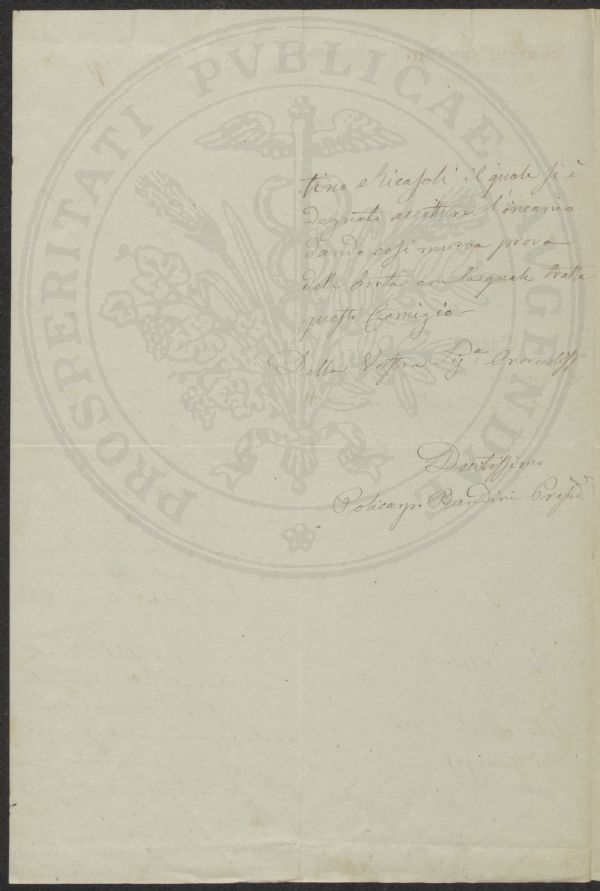 PROSPERITATI PVBLICAE AVGENDAE
tino Ricasoli il quale si è
degnato accettare l'incarico
dando così nuova prova
della bontà con la quale tratta
questo Comizio
Della Vostra Sig.ª Onorevoliss
Devotissimo
Policarpo Bandini Presid.